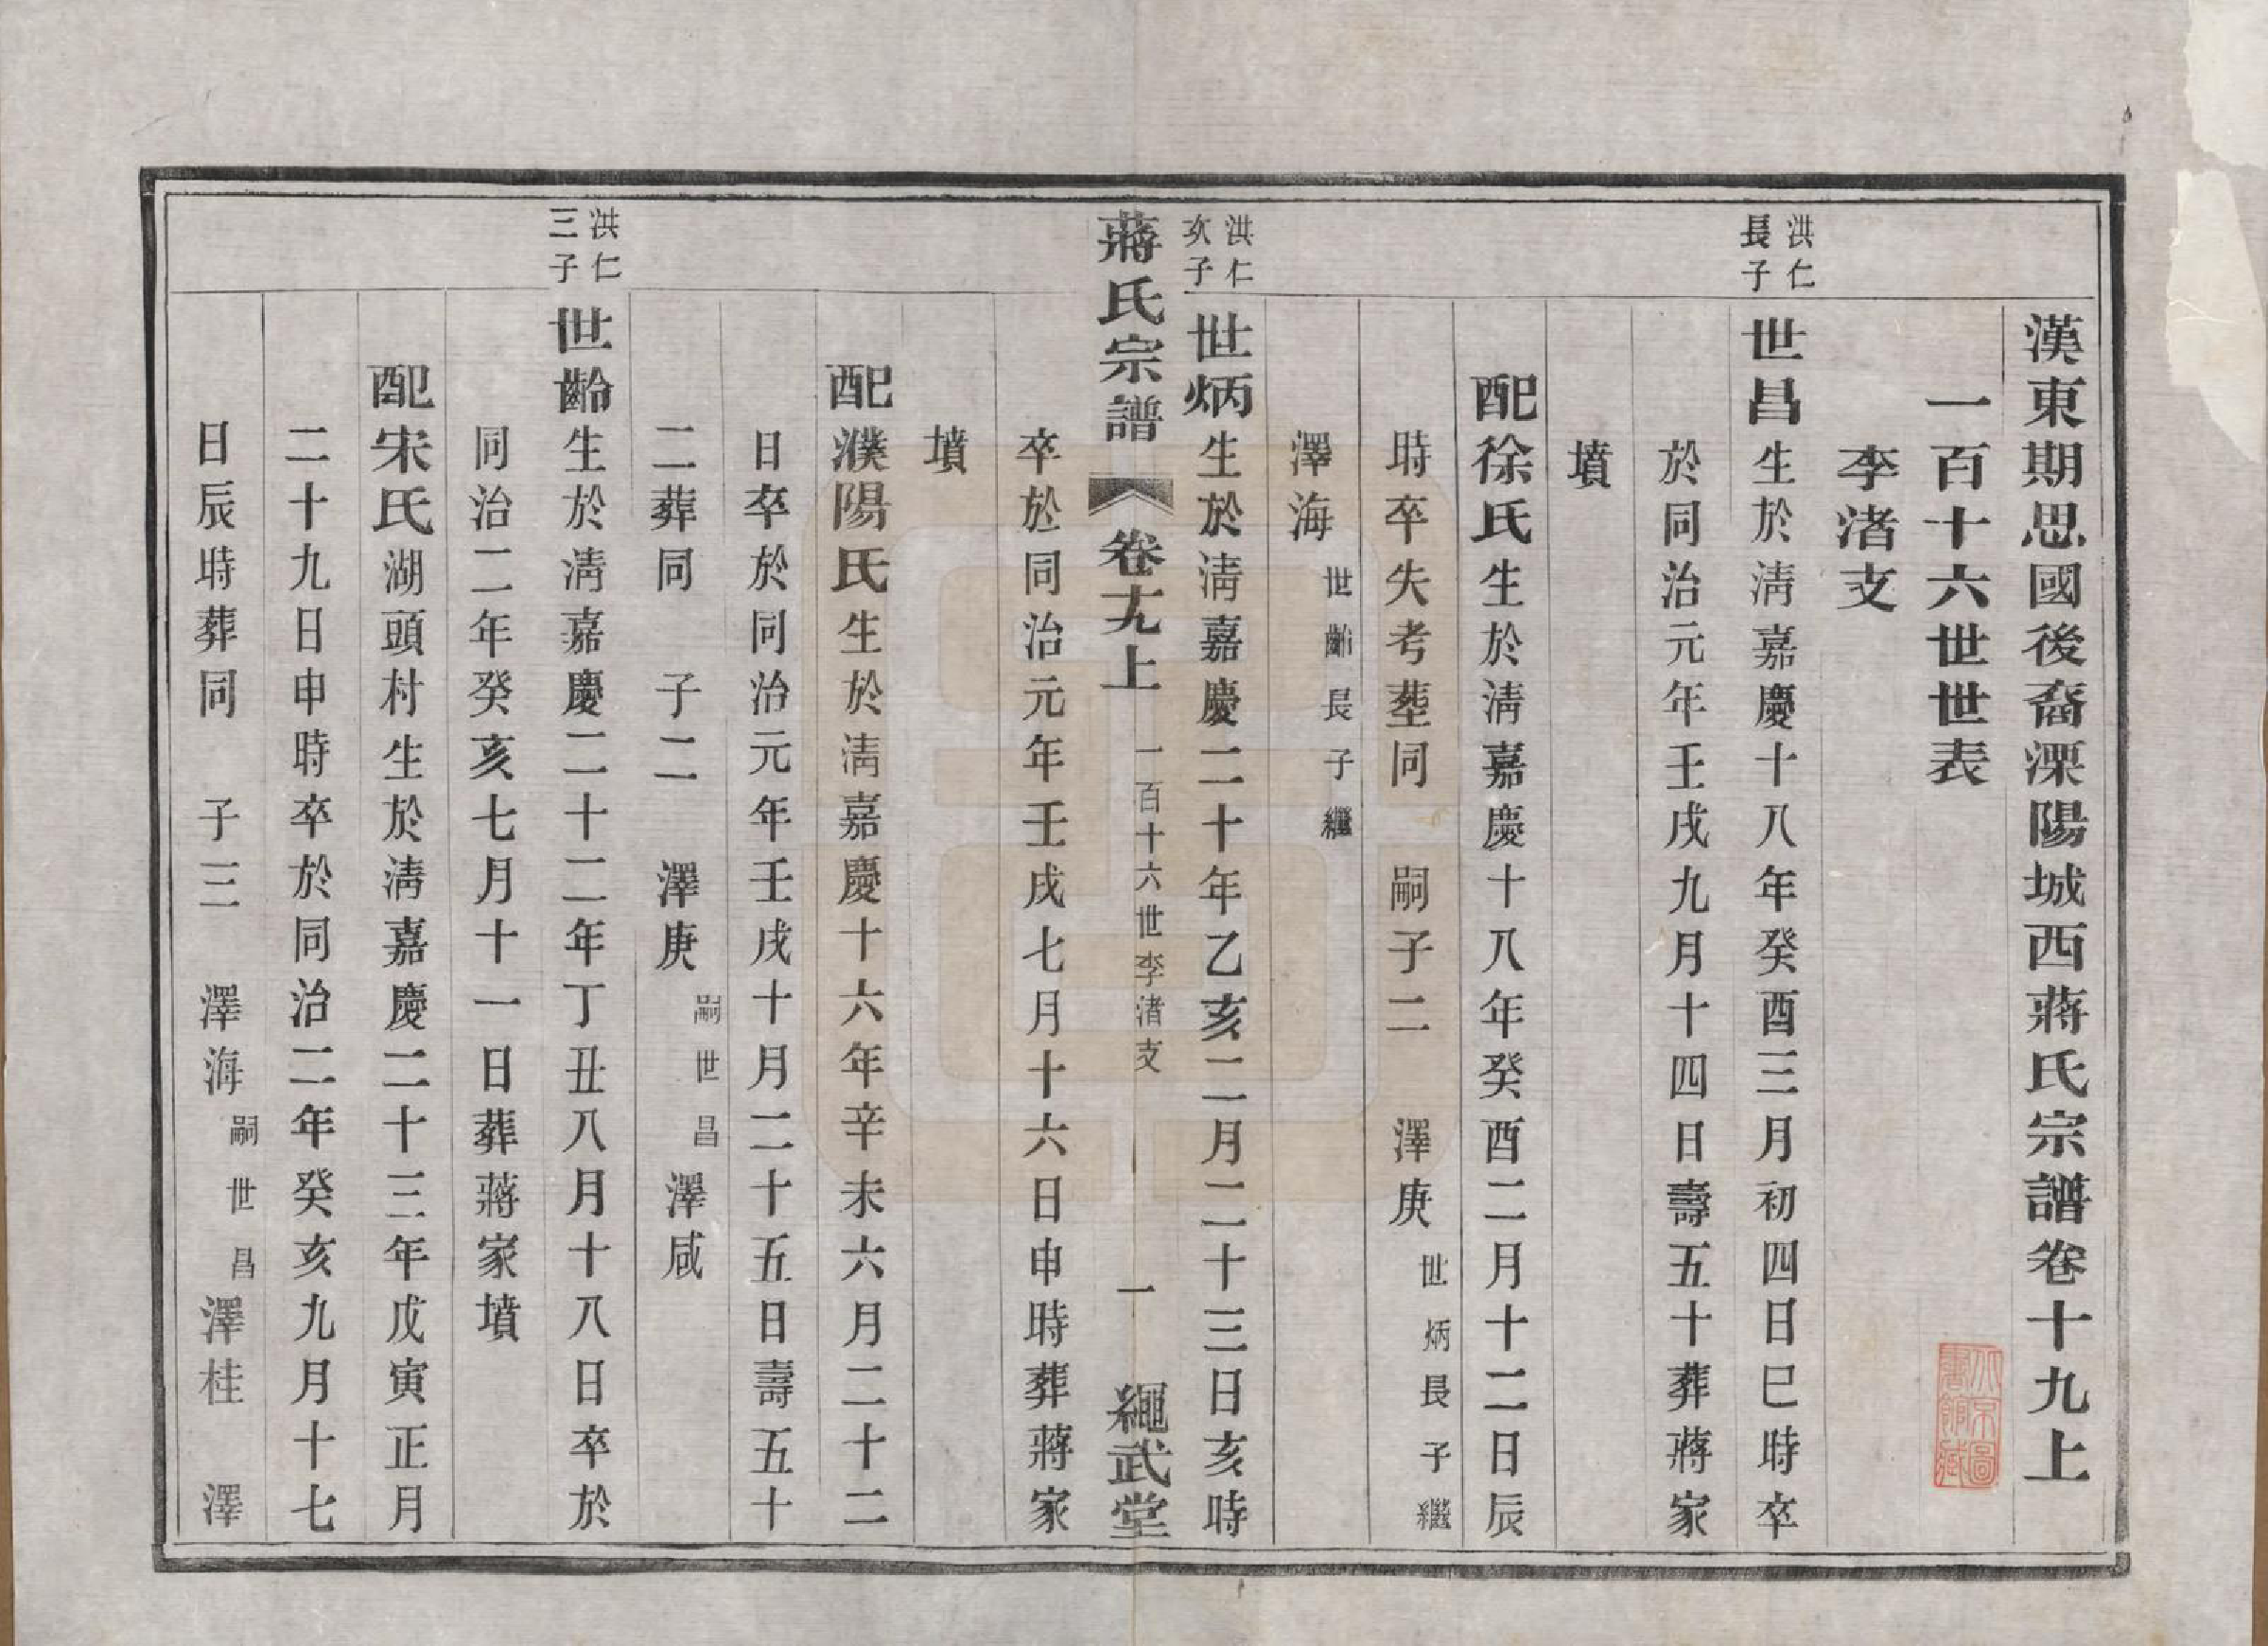 漢東期思國後裔溧陽城西蔣氏宗譜卷十九上
一百十六世世表
李渚支
洪仁長子
世昌生於淸嘉慶十八年癸酉三月初四日巳時卒
於同治元年壬戌九月十四日壽五十葬蔣家
墳
配徐氏生於淸嘉慶十八年癸酉二月十二日辰
時卒失考塟同 嗣子二 澤庚世炳長子繼
澤海世齡長子繼
洪仁次子
世炳生於淸嘉慶二十年乙亥二月二十三日亥時
蔣氏宗譜 卷十九上 一百十六世李渚支 一 繩武堂
卒於同治元年壬戌七月十六日申時葬蔣家
墳
配濮陽氏生於淸嘉慶十六年辛未六月二十二
日卒於同治元年壬戌十月二十五日壽五十
二葬同 子二 澤庚嗣世昌澤咸
洪仁三子
世齡生於淸嘉慶二十二年丁丑八月十八日卒於
同治二年癸亥七月十一日葬蔣家墳
配宋氏湖頭村生於淸嘉慶二十三年戊寅正月
二十九日申時卒於同治二年癸亥九月十七
日辰時葬同 子三 澤海嗣世昌澤桂 澤